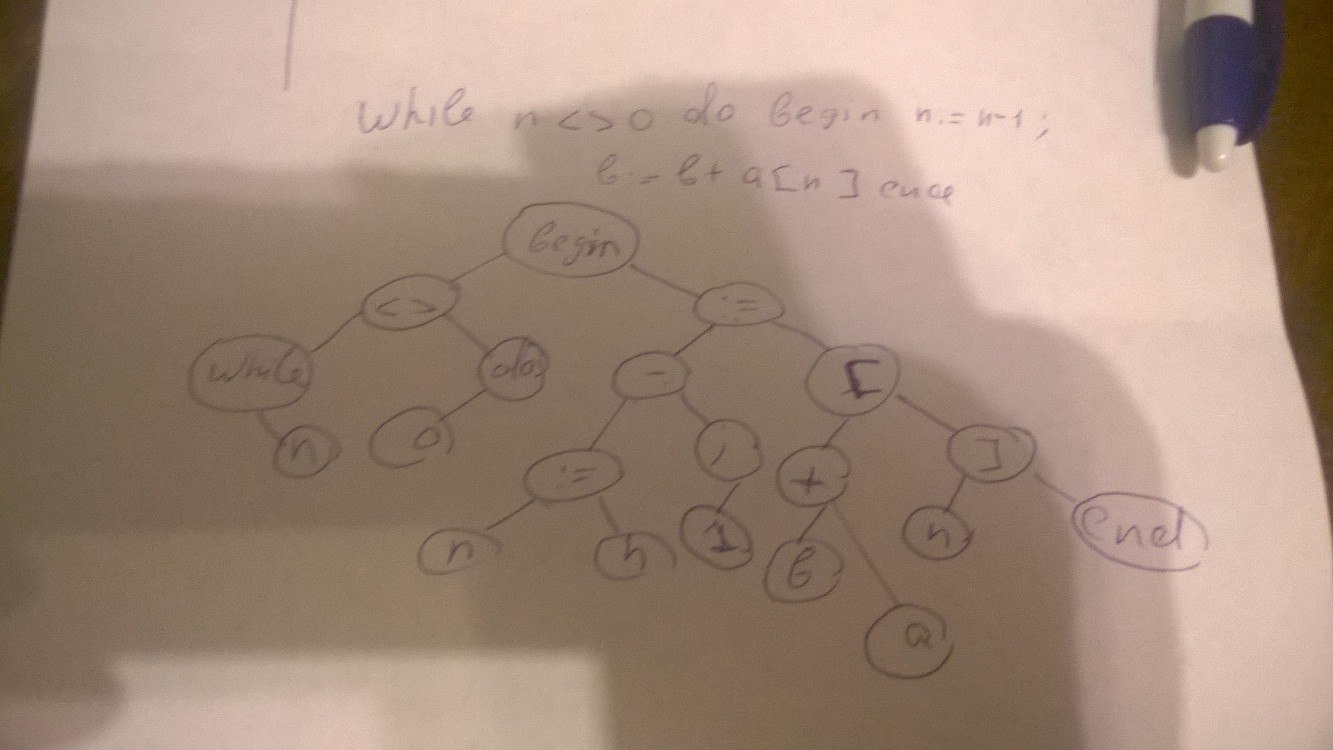 while n <> 0 do begin n := n-1;
b := b + a [n] end
begin
<> :=
while do - [
n 0 := , + ]
n n 1 b n end
a